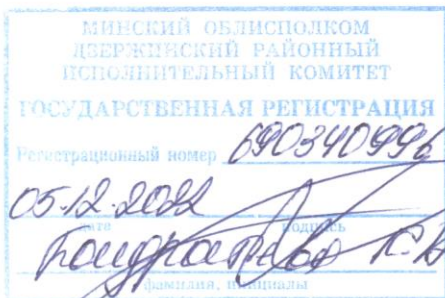 МИНСКИЙ ОБЛИСПОЛКОМ
ДЗЕРЖИНСКИЙ РАЙОННЫЙ
ИСПОЛНИТЕЛЬНЫЙ КОМИТЕТ
ГОСУДАРСТВЕННАЯ РЕГИСТРАЦИЯ
Регистрационный номер 690340996
05.12.2022
дата подпись
фамилия, инициалы